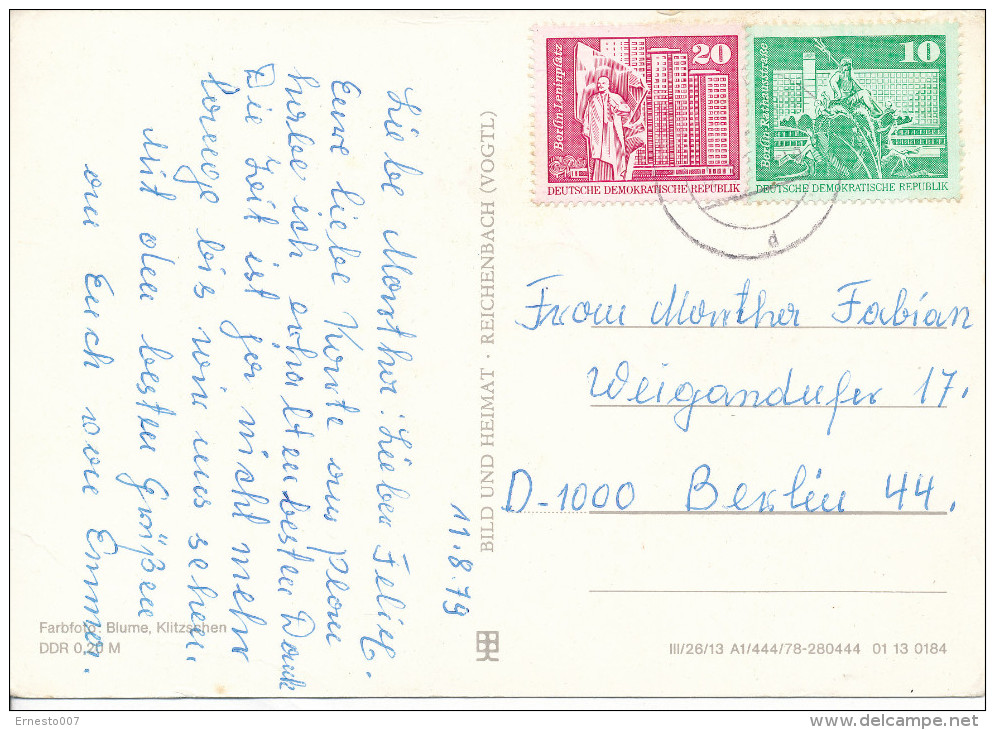 20
Berlin-Leninplatz
DEUTSCHE DEMOKRATISCHE REPUBLIK
10
Berlin-Rathausstraße
DEUTSCHE DEMOKRATISCHE REPUBLIK
d
11.8.79
Liebe Martha! Lieber Felix.
Eure liebe Karte aus Plau
habe ich erhalten besten Dank
Die Zeit ist gar nicht mehr
lange bis wir uns sehen.
Mit den besten Grüßen
an Euch von Emma.
BILD UND HEIMAT · REICHENBACH (VOGTL)
Frau Martha Fabian
Weigandufer 17.
D-1000 Berlin 44.
Farbfoto: Blume, Klitzschen
DDR 0,20 M
III/26/13 A1/444/78-280444 01 13 0184
Ernesto007
www.delcampe.net